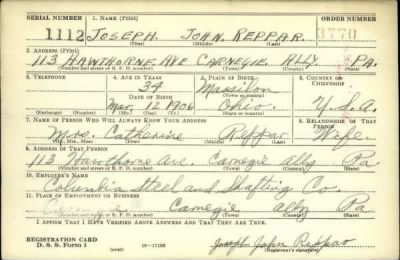 SERIAL NUMBER 1. NAME (Print) ORDER NUMBER
1112 JOSEPH. JOHN. REPPAR. 3770
(First) (Middle) (Last)
2. ADDRESS (Print)
113 HAWTHORNE AVE CARNEGIE. ALLY. PA.
(Number and street or R. F. D. number) (Town) (County) (State)
3. TELEPHONE 4. AGE IN YEARS 5. PLACE OF BIRTH 6. COUNTRY OF CITIZENSHIP
34 Massilon
DATE OF BIRTH (Town or county)
Mar. 12 1906 Ohio. U.S.A.
(Exchange) (Number) (Mo.) (Day) (Yr.) (State or country)
7. NAME OF PERSON WHO WILL ALWAYS KNOW YOUR ADDRESS 8. RELATIONSHIP OF THAT PERSON
Mrs. Catherine Reppar Wife.
(Mr., Mrs., Miss) (First) (Middle) (Last)
9. ADDRESS OF THAT PERSON
113 Hawthorne Ave. Carnegie Ally Pa.
(Number and street or R. F. D. number) (Town) (County) (State)
10. EMPLOYER'S NAME
Columbia Steel and Shafting Co.
11. PLACE OF EMPLOYMENT OR BUSINESS
Carnegie Ally Pa
(Number and street or R. F. D. number) (Town) (County) (State)
I AFFIRM THAT I HAVE VERIFIED ABOVE ANSWERS AND THAT THEY ARE TRUE.
REGISTRATION CARD
D. S. S. Form 1 (over) 16-17105 Joseph John Reppar